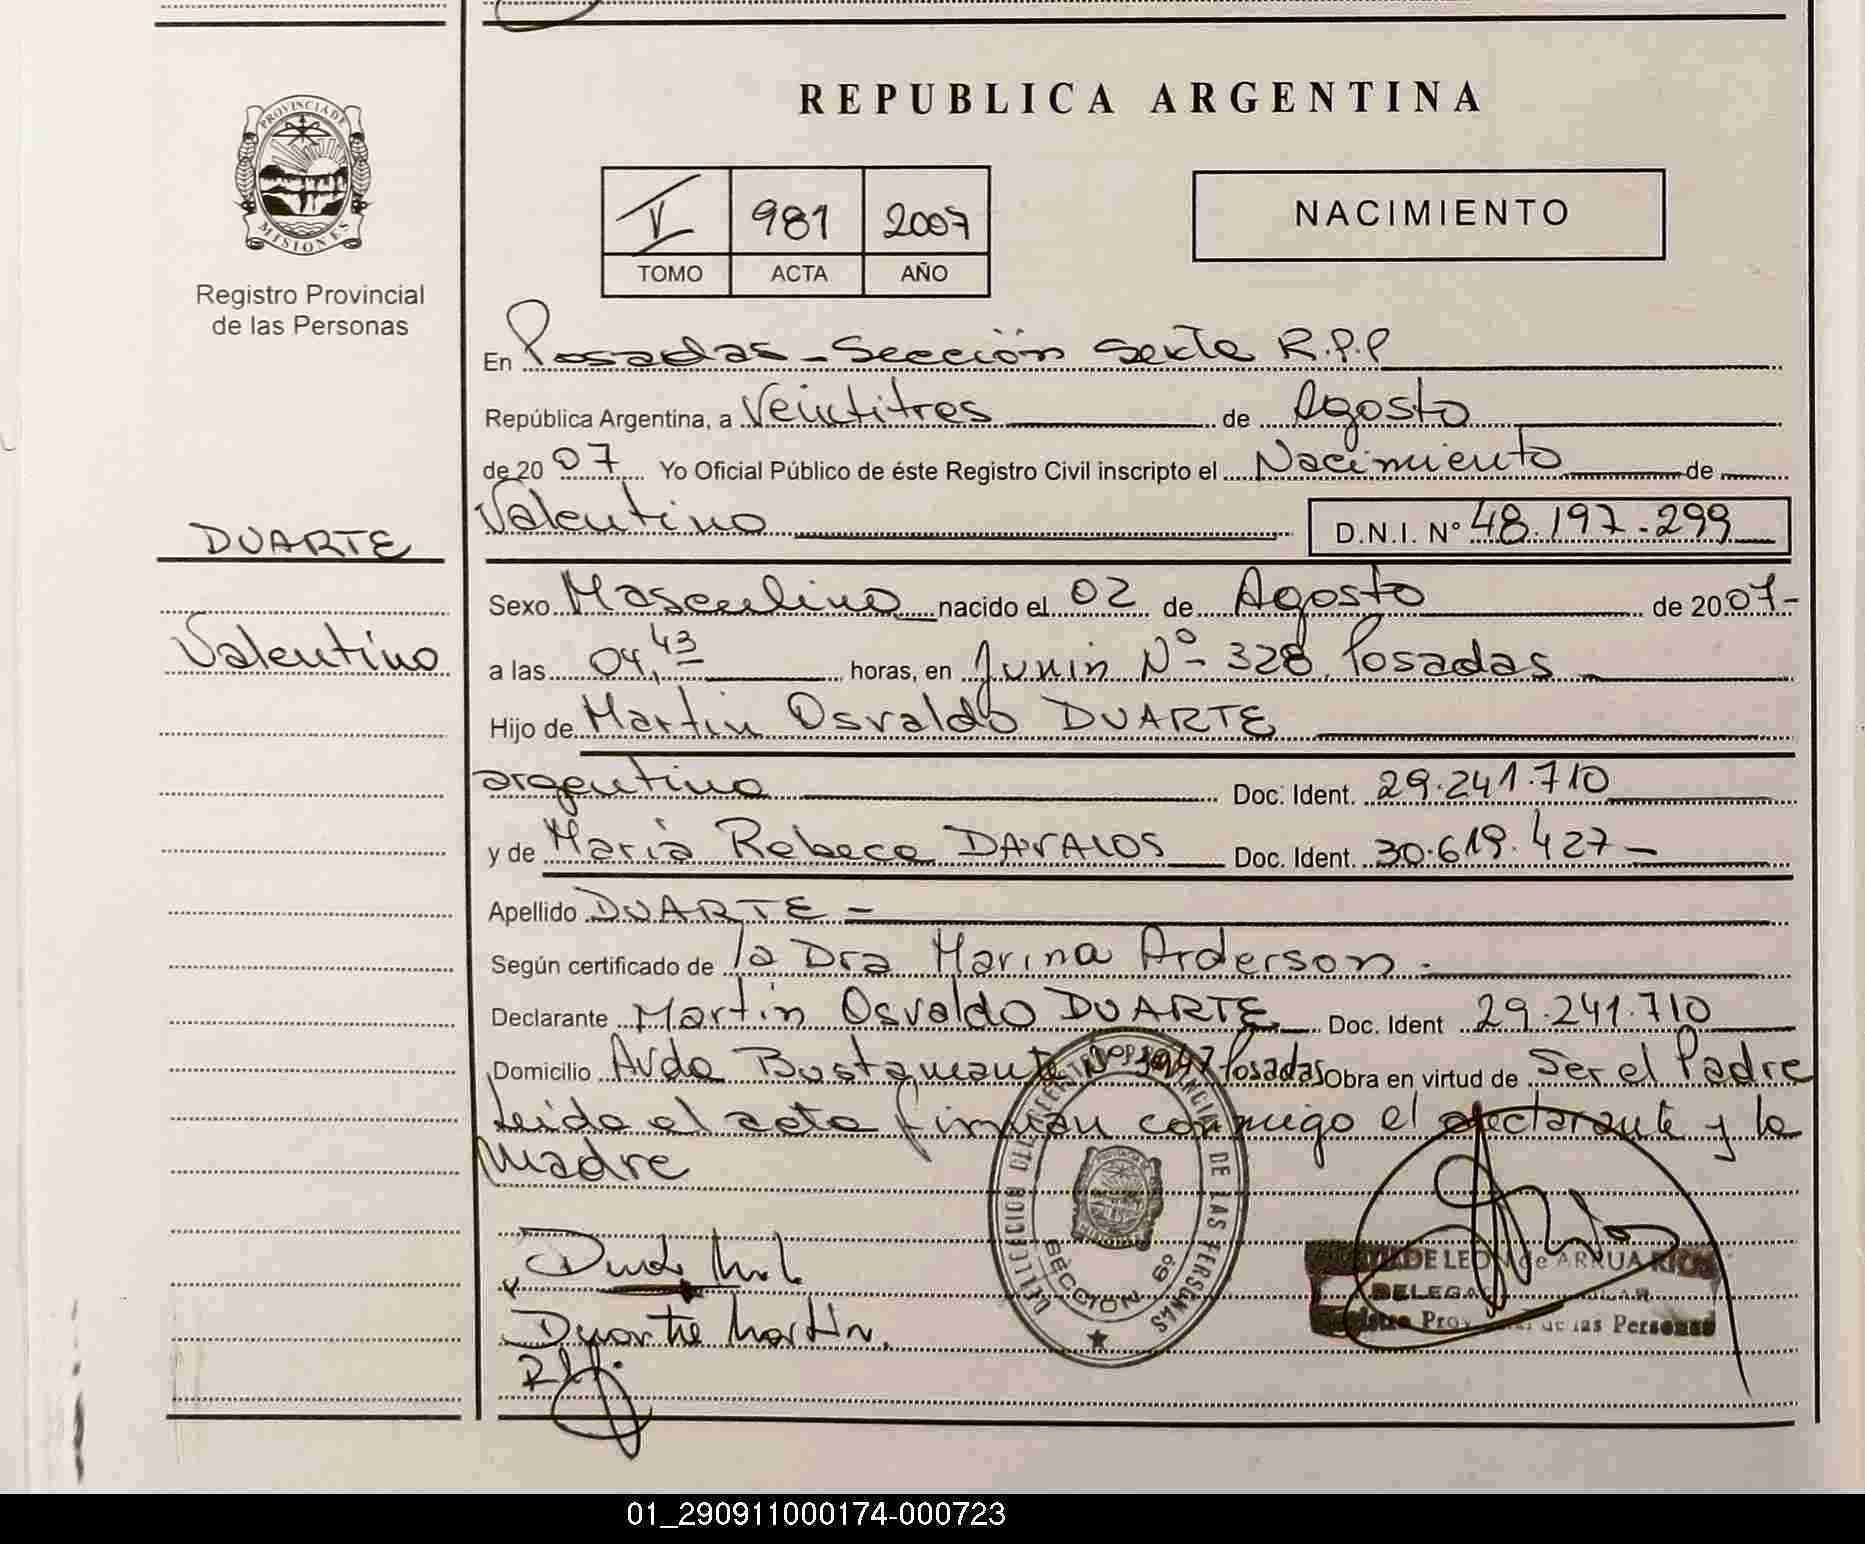 REPUBLICA ARGENTINA
PROVINCIA DE MISIONES
Registro Provincial
de las Personas
V 981 2007
TOMO ACTA AÑO
NACIMIENTO
En Posadas - Sección Sexta R.P.P
República Argentina, a Veintitres de Agosto
de 2007 Yo Oficial Público de éste Registro Civil inscripto el Nacimiento de
Valentino D.N.I. Nº 48.197.299
DUARTE
Valentino
Sexo Masculino nacido el 02 de Agosto de 2007-
a las 04,43 horas, en Junin Nº- 328 Posadas
Hijo de Martin Osvaldo DUARTE
argentino Doc. Ident. 29.241.710
y de Maria Rebeca DAVALOS Doc. Ident. 30.619.427-
Apellido DUARTE -
Según certificado de la Dra Marina Arderson.
Declarante Martin Osvaldo DUARTE Doc. Ident 29.241.710
Domicilio Avda Bustamante Nº Posadas Obra en virtud de Ser el Padre
Leida el acta firman conmigo el declarante y la
Madre
Duarte Martin.
SECCION 6º
DE LEON de ARRUA RIOS
de las Personas
01_290911000174-000723